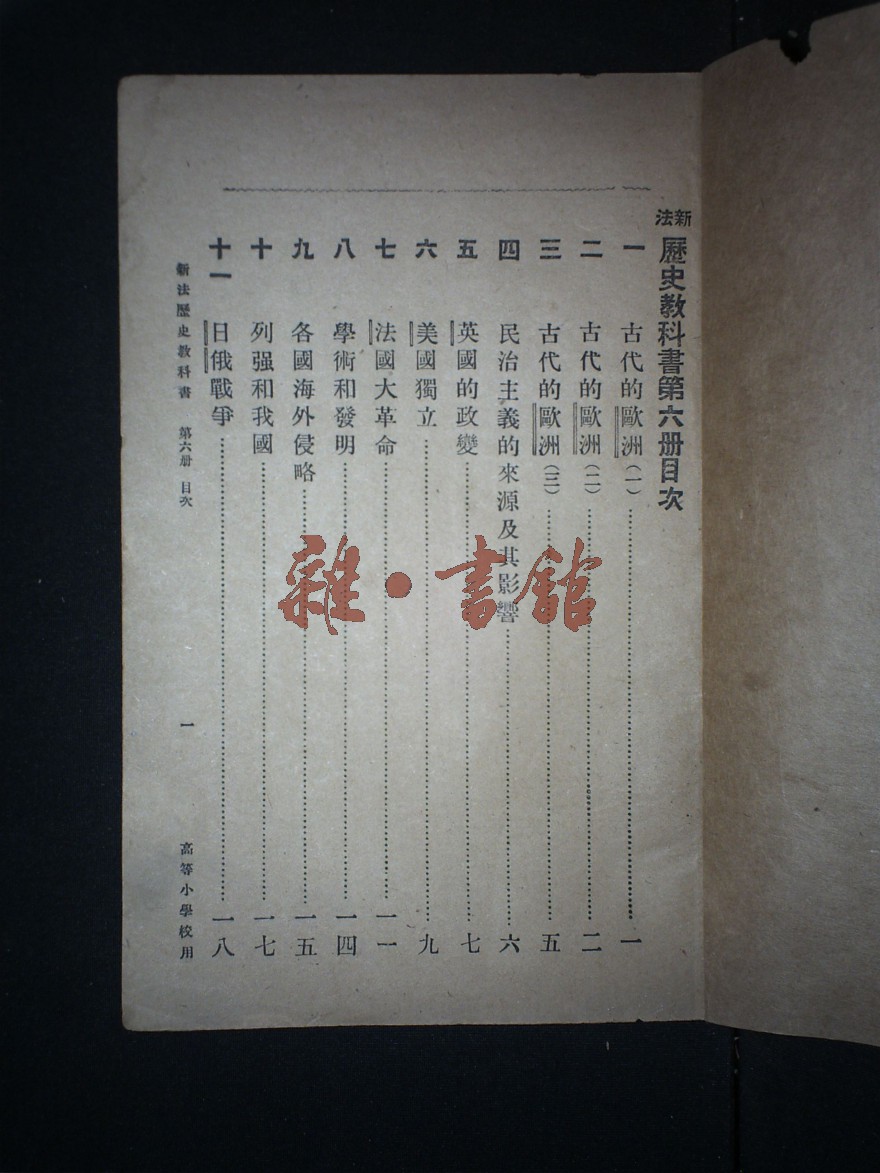 新法 歷史教科書第六册目次
一 古代的歐洲(一)……一
二 古代的歐洲(二)……二
三 古代的歐洲(三)……五
四 民治主義的來源及其影響……六
五 英國的政變……七
六 美國獨立……九
七 法國大革命……一一
八 學術和發明……一四
九 各國海外侵略……一五
十 列强和我國……一七
十一 日俄戰爭……一八
新法歷史教科書 第六册 目次 一 高等小學校用
雜·書館